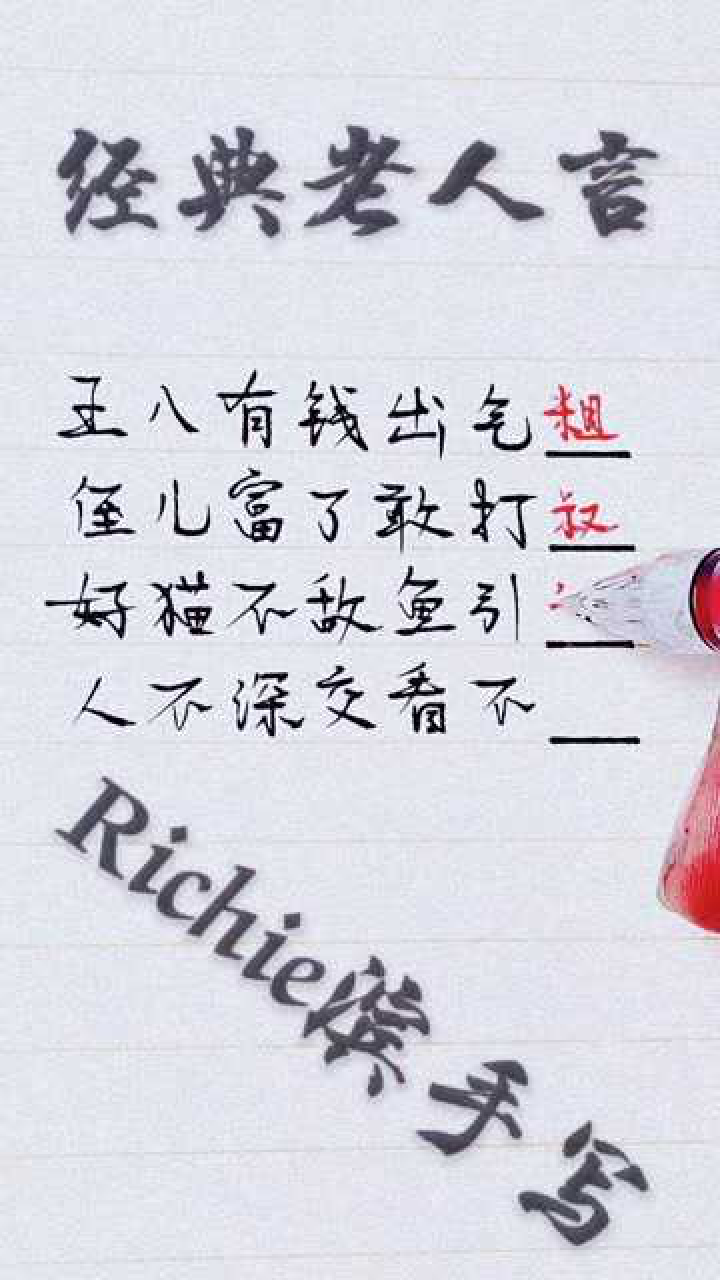 经典老人言
王八有钱出气粗
侄儿富了敢打叔
好猫不敌鱼引
人不深交看不
Richie柒手写